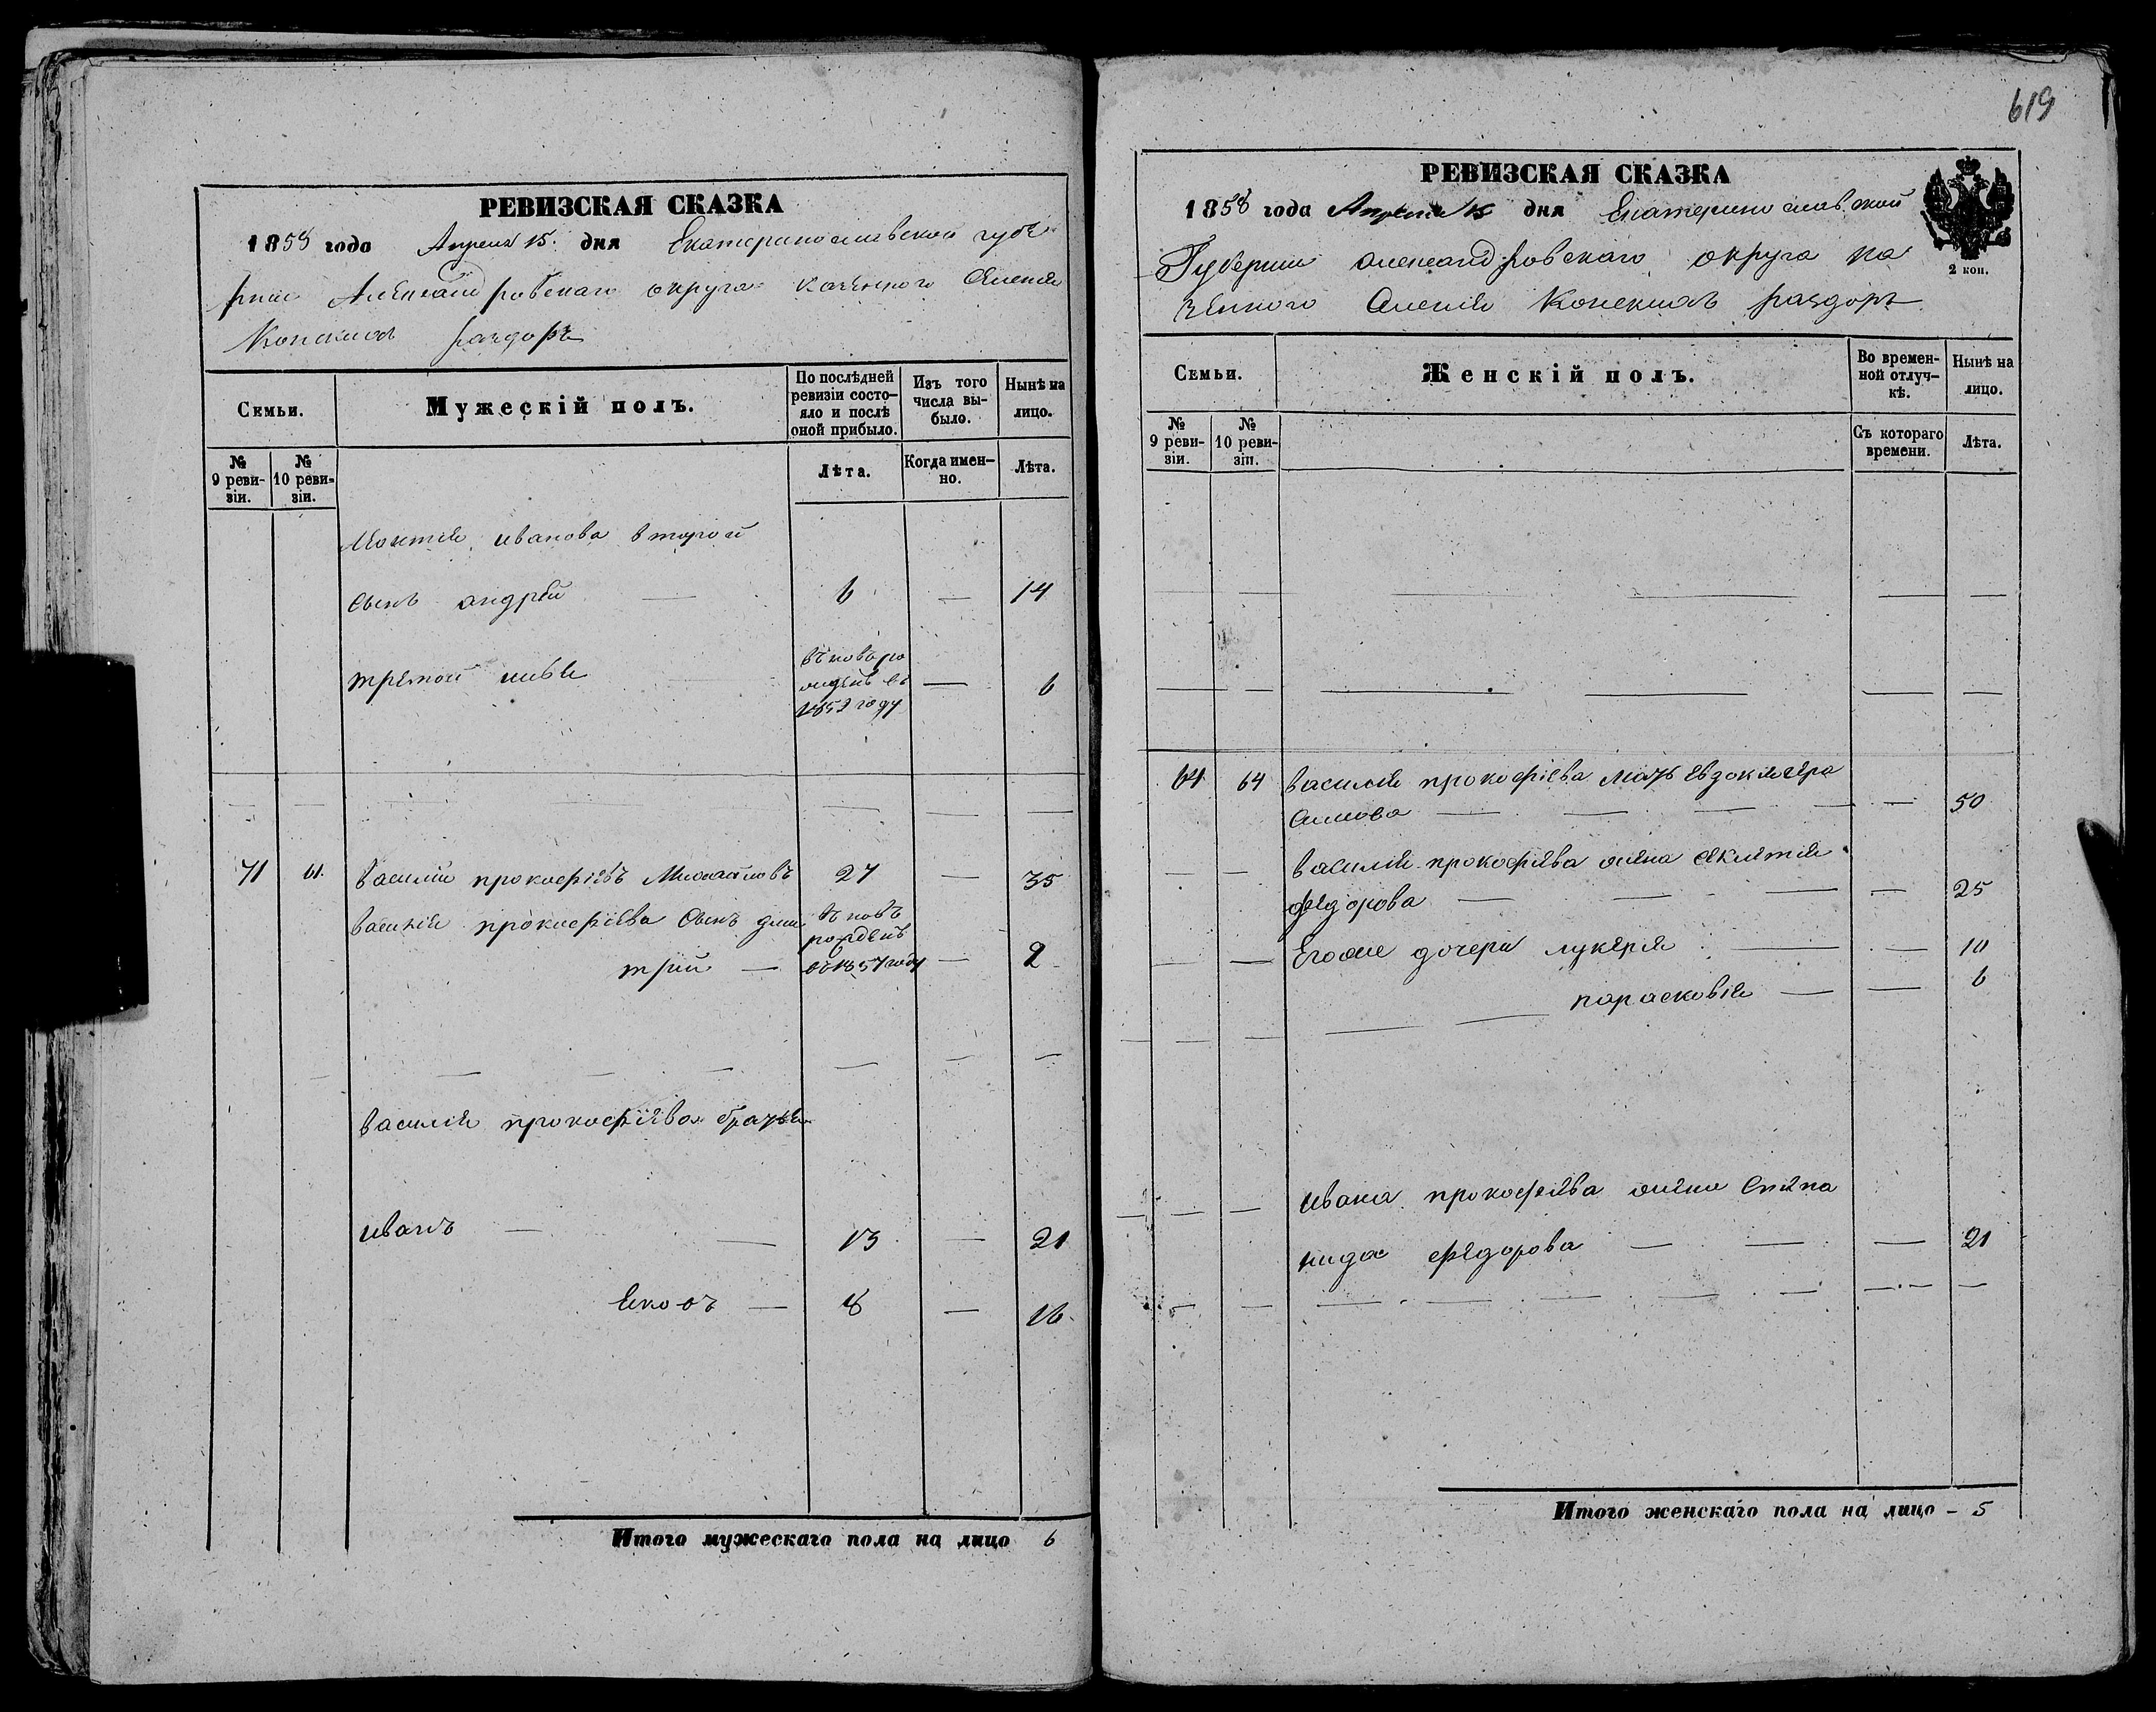 РЕВИЗСКАЯ СКАЗКА
1858 года Апреля 15. дня Екатеринославской губе
рнии Александровскаго округа казенного Селенія
Конскихъ раздоръ
Семьи.
Мужескій полъ.
По послѣдней ревизіи состо-
яло и послѣ оной прибыло.
Изъ того числа вы-
было.
Нынѣ на лицо.
№ 9 реви-
зіи.
№ 10 реви-
зіи.
Лѣта.
Когда имен-
но.
Лѣта.
иванова второй
сынъ андрей — 6 — 14
третой
въ новъ ро
жденъ въ
1852 году — 6
71 61. василий прокофіевъ 27 — 35
василія прокофіева сынъ дми
трий — въ новъ
рожденъ
въ 1857 году — 2
василія прокофіева братья
иванъ — 13 — 21
— 8 — 16
Итого мужескаго пола на лицо 6
619
РЕВИЗСКАЯ СКАЗКА
1858 года Апреля 15 дня Екатеринославской
Губернии александровскаго округа ка
зенного Селенія Конскихъ раздоръ
2 коп.
Семьи.
Женскій полъ.
Во времен-
ной отлуч-
кѣ.
Нынѣ на
лицо.
№ 9 реви-
зіи.
№ 10 реви-
зіи.
Съ котораго
времени.
Лѣта.
64 64 василія прокофіева мать евдокия гера
симова — 50
василія прокофіева жена
федорова — 25
Егоже дочери лукеря — 10
парасковія — 6
ивана прокофіева жена степа
нида федорова — 21
Итого женскаго пола на лицо - 5